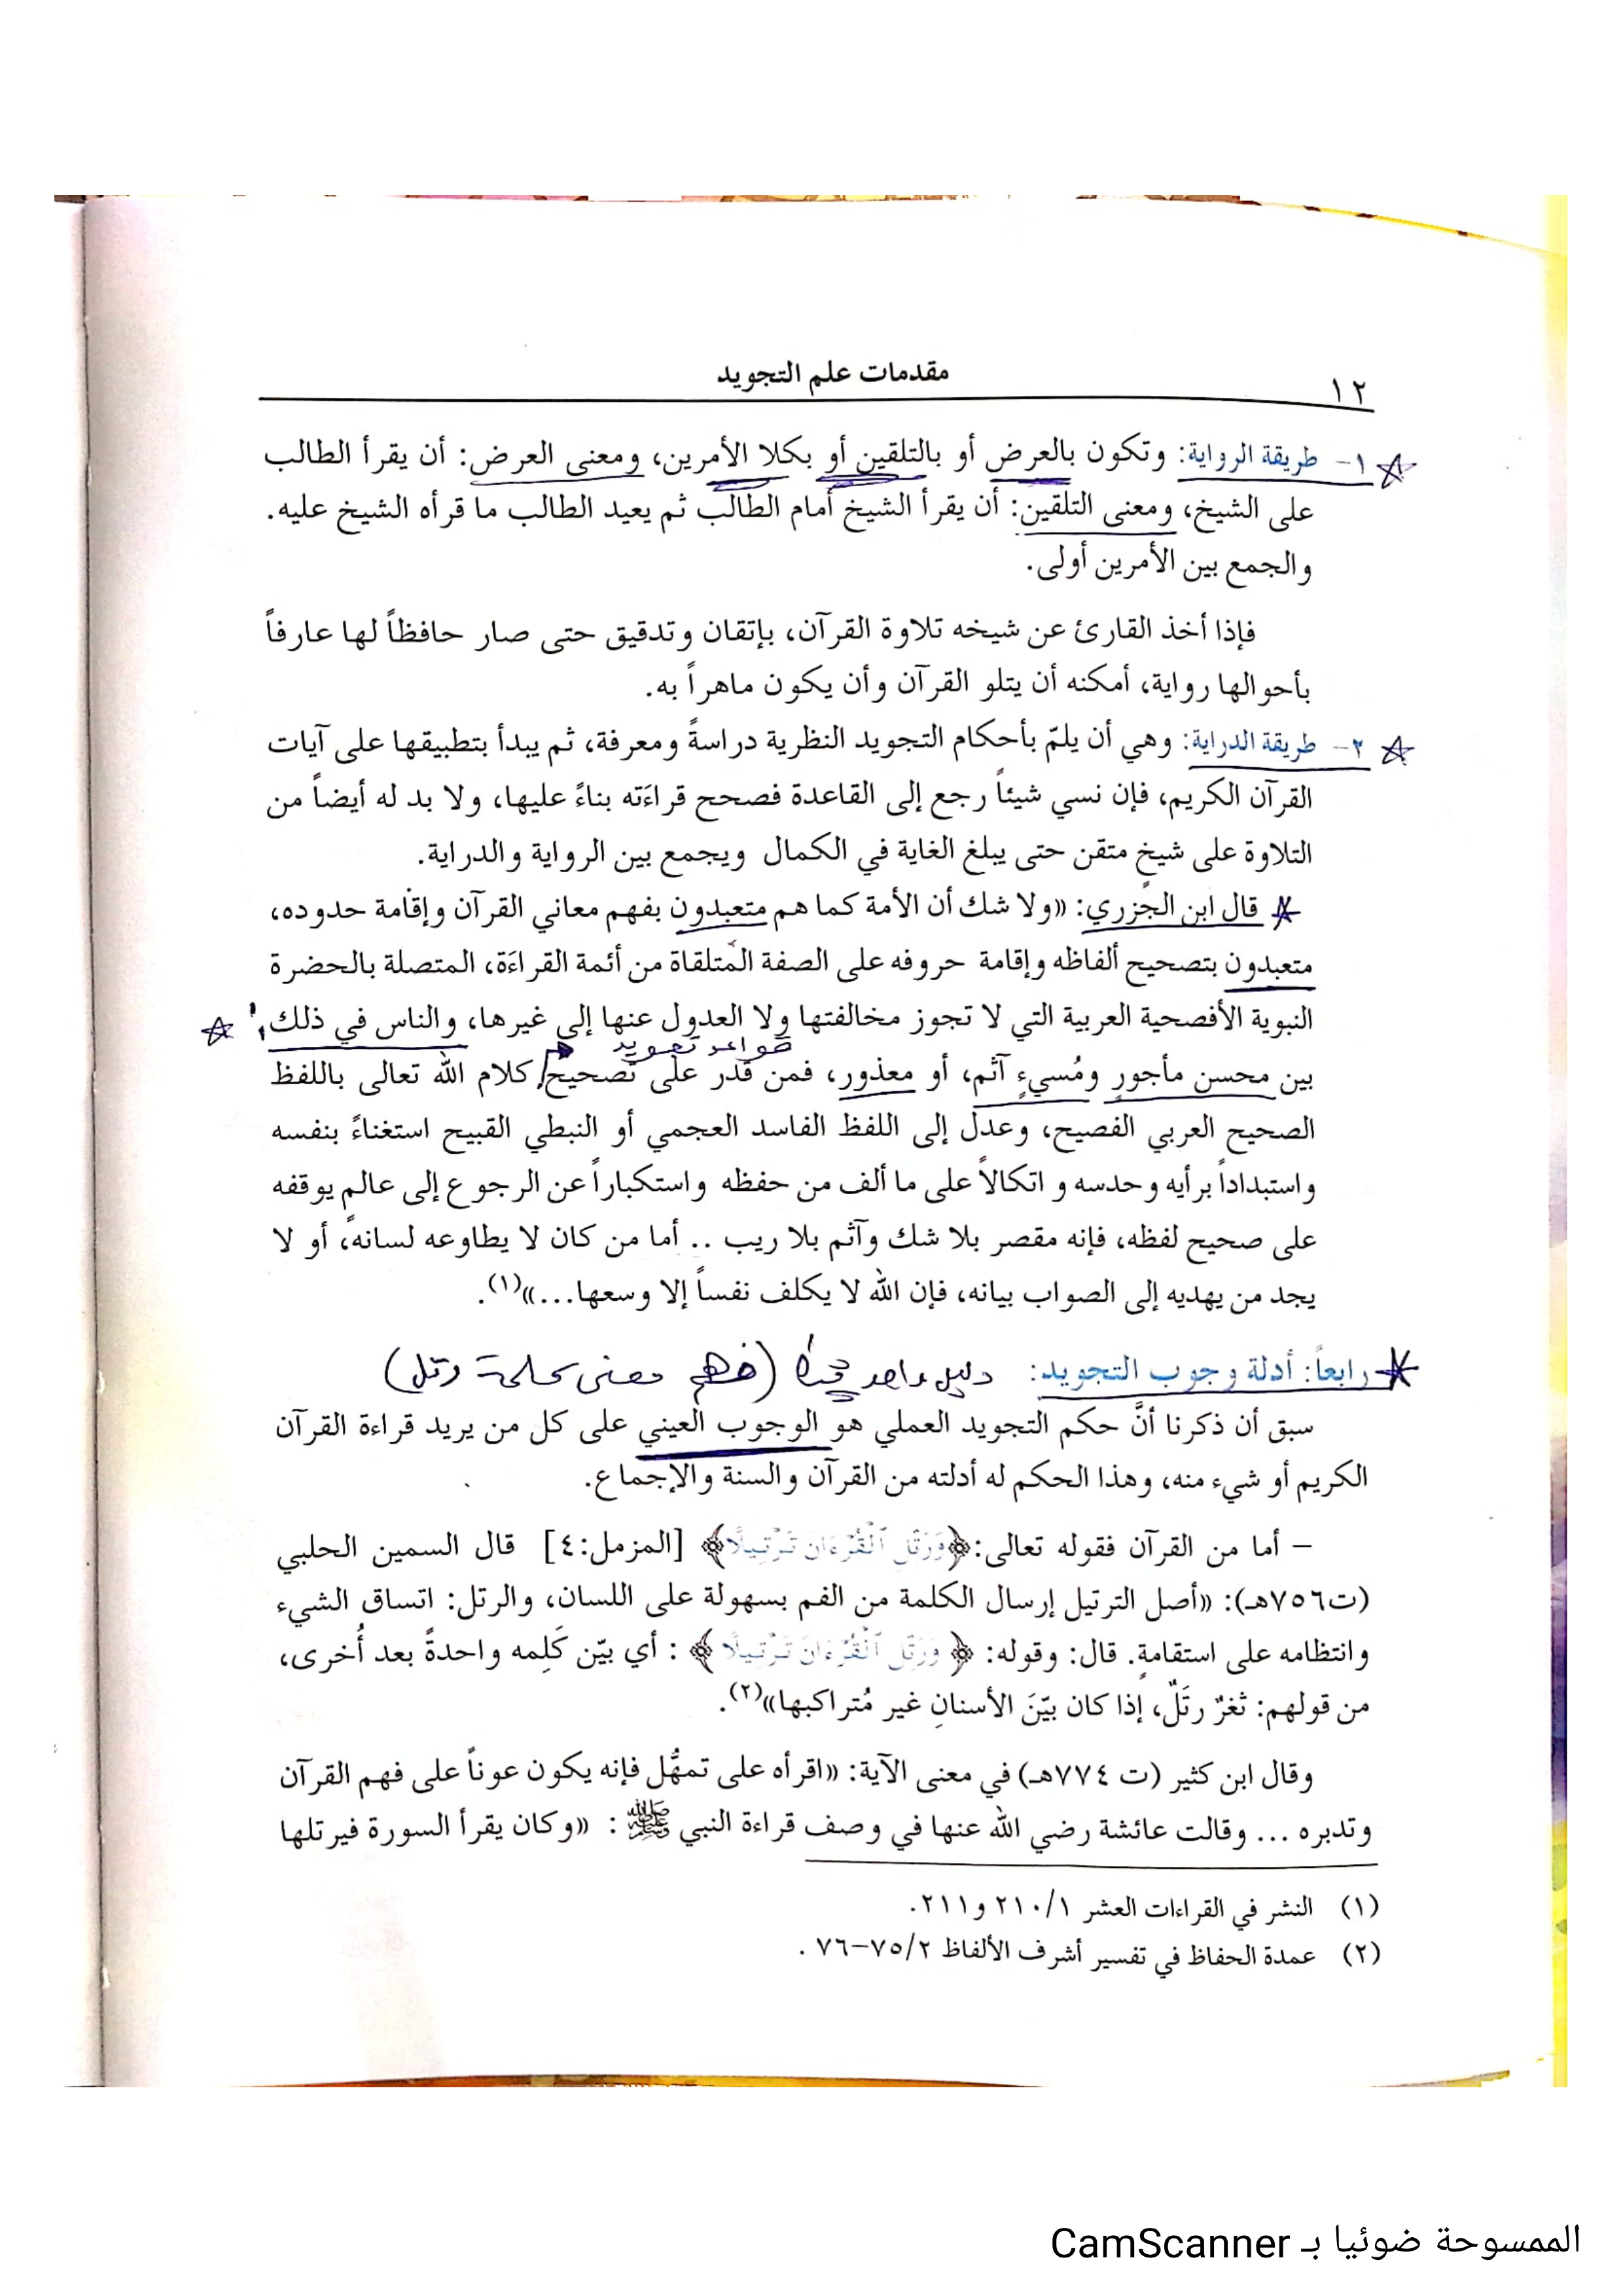 ١٢
مقدمات علم التجويد
١- طريقة الرواية: وتكون بالعرض أو بالتلقين أو بكلا الأمرين، ومعنى العرض: أن يقرأ الطالب
على الشيخ، ومعنى التلقين: أن يقرأ الشيخ أمام الطالب ثم يعيد الطالب ما قرأه الشيخ عليه.
والجمع بين الأمرين أولى.
فإذا أخذ القارئ عن شيخه تلاوة القرآن، بإتقان وتدقيق حتى صار حافظاً لها عارفاً
بأحوالها رواية، أمكنه أن يتلو القرآن وأن يكون ماهراً به.
٢- طريقة الدراية: وهي أن يلمّ بأحكام التجويد النظرية دراسةً ومعرفة، ثم يبدأ بتطبيقها على آيات
القرآن الكريم، فإن نسي شيئاً رجع إلى القاعدة فصحح قراءَته بناءً عليها، ولا بد له أيضاً من
التلاوة على شيخٍ متقن حتى يبلغ الغاية في الكمال ويجمع بين الرواية والدراية.
قال ابن الجزري: «ولا شك أن الأمة كما هم متعبدون بفهم معاني القرآن وإقامة حدوده،
متعبدون بتصحيح ألفاظه وإقامة حروفه على الصفة المُتلقاة من أئمة القراءَة، المتصلة بالحضرة
النبوية الأفصحية العربية التي لا تجوز مخالفتها ولا العدول عنها إلى غيرها، والناس في ذلك
قواعد تجويد
بين محسن مأجورٍ ومُسيءٍ آثم، أو معذور، فمن قدر على تصحيح كلام الله تعالى باللفظ
الصحيح العربي الفصيح، وعدل إلى اللفظ الفاسد العجمي أو النبطي القبيح استغناءً بنفسه
واستبداداً برأيه وحدسه و اتكالاً على ما ألف من حفظه واستكباراً عن الرجوع إلى عالمٍ يوقفه
على صحيح لفظه، فإنه مقصر بلا شك وآثم بلا ريب .. أما من كان لا يطاوعه لسانه، أو لا
يجد من يهديه إلى الصواب بيانه، فإن الله لا يكلف نفساً إلا وسعها...»(١).
رابعاً: أدلة وجوب التجويد: دليل واحد (فهم معنى كلمة رتل)
سبق أن ذكرنا أنَّ حكم التجويد العملي هو الوجوب العيني على كل من يريد قراءة القرآن
الكريم أو شيء منه، وهذا الحكم له أدلته من القرآن والسنة والإجماع.
– أما من القرآن فقوله تعالى: ﴿وَرَتِّلِ ٱلْقُرْءَانَ تَرْتِيلًا﴾ [المزمل:٤] قال السمين الحلبي
(ت٧٥٦هـ): «أصل الترتيل إرسال الكلمة من الفم بسهولة على اللسان، والرتل: اتساق الشيء
وانتظامه على استقامةٍ. قال: وقوله: ﴿وَرَتِّلِ ٱلْقُرْءَانَ تَرْتِيلًا﴾ : أي بيّن كَلِمه واحدةً بعد أُخرى،
من قولهم: ثغرٌ رتَلٌ، إذا كان بيّنَ الأسنانِ غير مُتراكبها»(٢).
وقال ابن كثير (ت ٧٧٤هـ) في معنى الآية: «اقرأه على تمهُّل فإنه يكون عوناً على فهم القرآن
وتدبره ... وقالت عائشة رضي الله عنها في وصف قراءة النبي ﷺ : «وكان يقرأ السورة فيرتلها
(١) النشر في القراءات العشر ٢١٠/١ و٢١١.
(٢) عمدة الحفاظ في تفسير أشرف الألفاظ ٧٥/٢–٧٦ .
الممسوحة ضوئيا بـ CamScanner